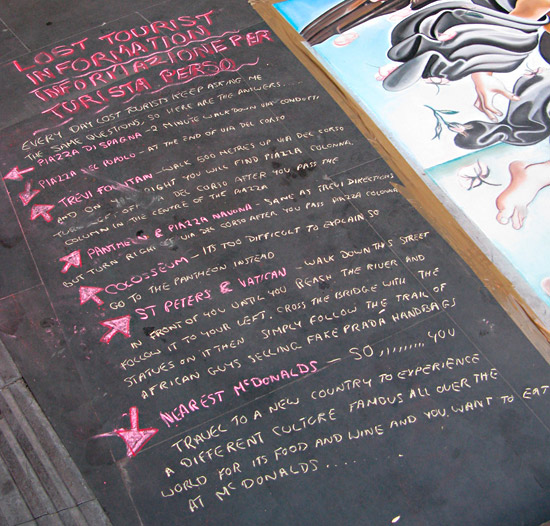 LOST TOURIST
INFORMATION
INFORMAZIONE PER
TURISTA PERSO
EVERY DAY LOST TOURISTS KEEP ASKING ME
THE SAME QUESTIONS, SO HERE ARE THE ANSWERS.
PIAZZA DI SPAGNA - 2 MINUTE WALK DOWN VIA CONDOTTI
PIAZZA DEL POPOLO - AT THE END OF VIA DEL CORSO
TREVI FOUNTAIN - WALK 500 METRES UP VIA DEL CORSO
AND ON YOUR RIGHT YOU WILL FIND PIAZZA COLONNA,
TURN LEFT OFF VIA DEL CORSO AFTER YOU PASS THE
COLUMN IN THE CENTRE OF THE PIAZZA
PANTHEON & PIAZZA NAVONA - SAME AS TREVI DIRECTIONS
BUT TURN RIGHT OFF VIA DEL CORSO AFTER YOU PASS PIAZZA COLONNA
COLOSSEUM - ITS TOO DIFFICULT TO EXPLAIN SO
GO TO THE PANTHEON INSTEAD
ST PETERS & VATICAN - WALK DOWN THIS STREET
IN FRONT OF YOU UNTIL YOU REACH THE RIVER AND
FOLLOW IT TO YOUR LEFT, CROSS THE BRIDGE WITH THE
STATUES ON IT THEN SIMPLY FOLLOW THE TRAIL OF
AFRICAN GUYS SELLING FAKE PRADA HANDBAGS
NEAREST McDONALDS - SO ,,,,,,,,, YOU
TRAVEL TO A NEW COUNTRY TO EXPERIENCE
A DIFFERENT CULTURE FAMOUS ALL OVER THE
WORLD FOR ITS FOOD AND WINE AND YOU WANT TO EAT
AT McDONALDS.....